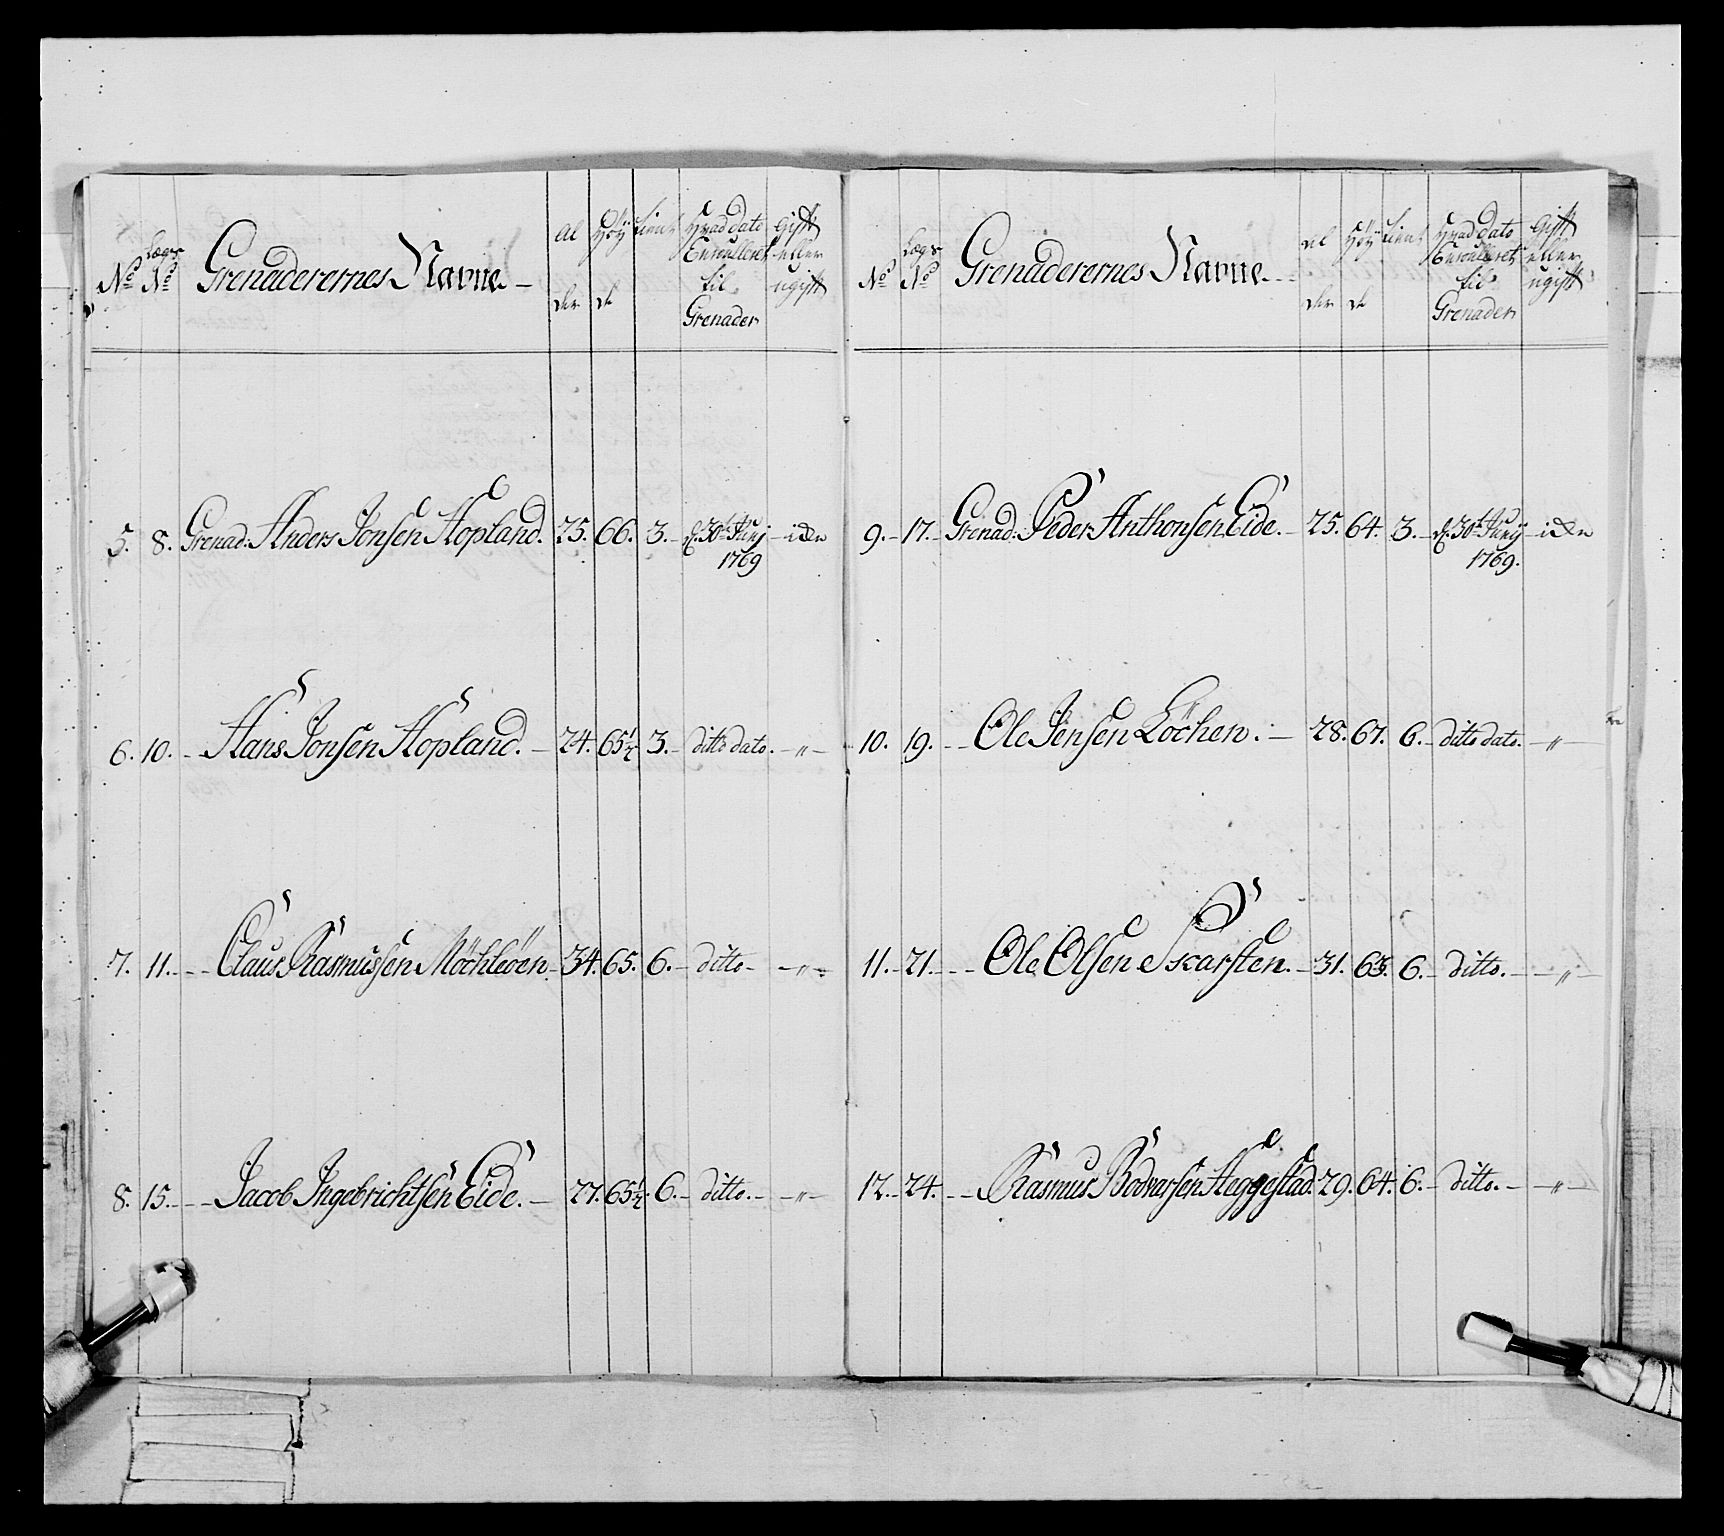 No Lægs No Grenaderernes Navne Al der Höy de Tient Hvad dato Enrulleret til Grenader Gift eller ugift
5. 8. Grenad: Anders Jonsen Hopland. 25. 66. 3. d. 30t Junij 1769
6. 10. Hans Jonsen Hopland. 24. 65½ 3. ditto dato. "
7. 11. Claus Rasmussen Möchleöen 34. 65. 6. ditto "
8. 15. Jacob Ingebrichtsen Eide. 27. 65½. 6. ditto. "
No Lægs No Grenaderernes Navne Al der Höy de Tient Hvad dato Enrulleret til Grenader Gift eller ugift
9. 17. Grenad: Peder Anthonsen Eide. 25. 64. 3. d. 30t Junij 1769.
10. 19. Ole Jensen Löchen. 28. 67. 6. ditto dato. "
11. 21. Ole Olsen Skarsten. 31. 63. 6. ditto. "
12. 24. Rasmus Bodvarsen Heggestad. 29. 64. 6. ditto. "